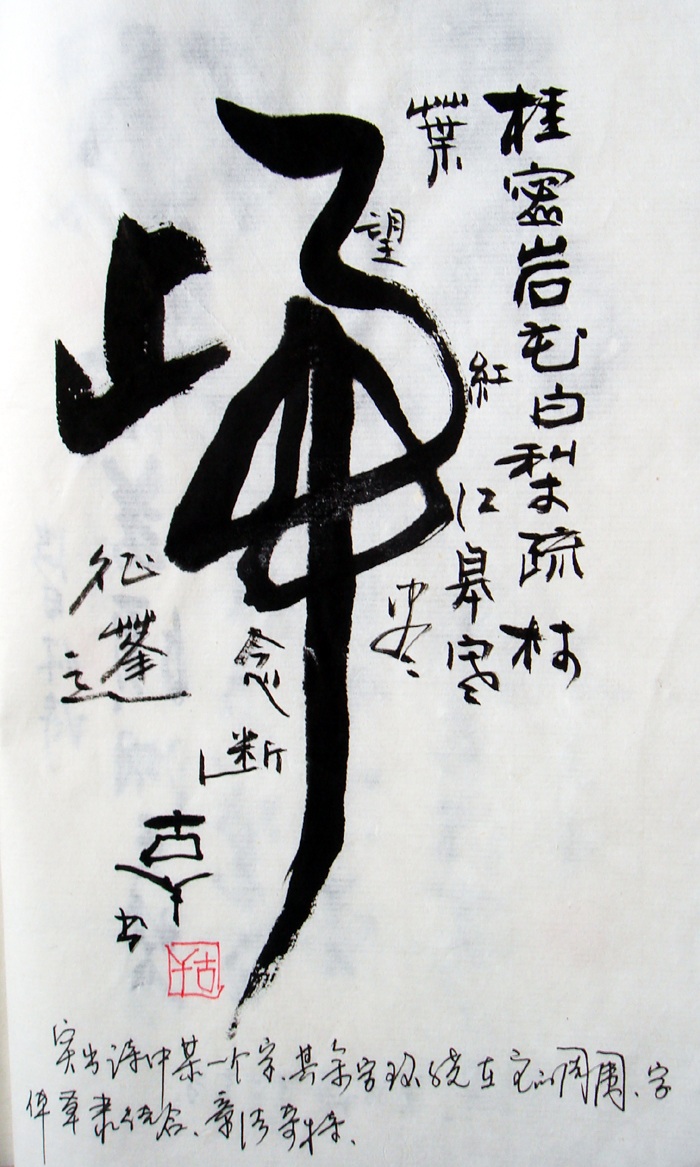 桂密岩花白梨疏林
葉
紅
江皋寒
望
尽
歸
念断
征蓬
古干书
古干
突出诗中某一个字、其余字环绕在它的周围、字
体草隶结合、章法奇特.